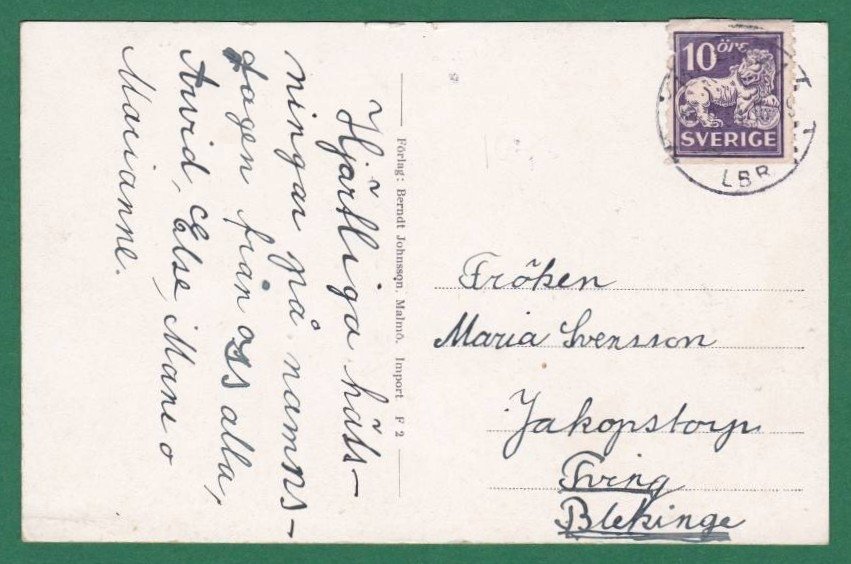 Hjärtliga häls-
ningar på namns-
dagen från oss alla,
Arvid, Else, Mane o
Marianne.
Förlag: Berndt Johnsson, Malmö. Import F 2
10 ÖRE
SVERIGE
LBR
Fröken
Maria Svensson
Jakopstorp
Tving
Blekinge